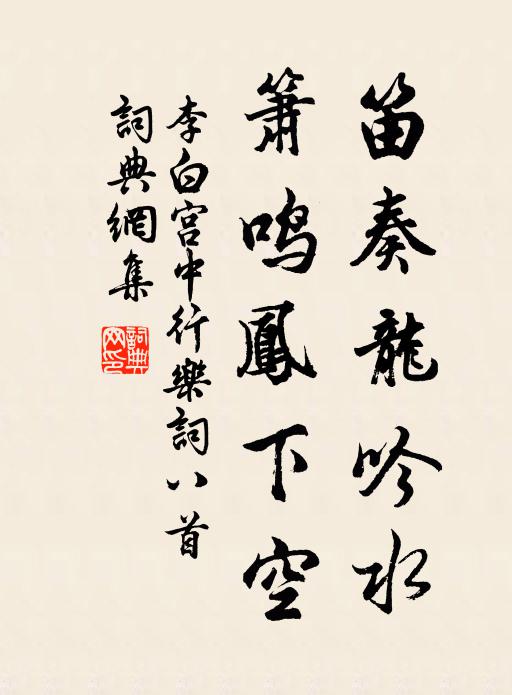 笛奏龍吟水
簫鳴鳳下空
李白宮中行樂詞八首
詞典網集
詞典網印